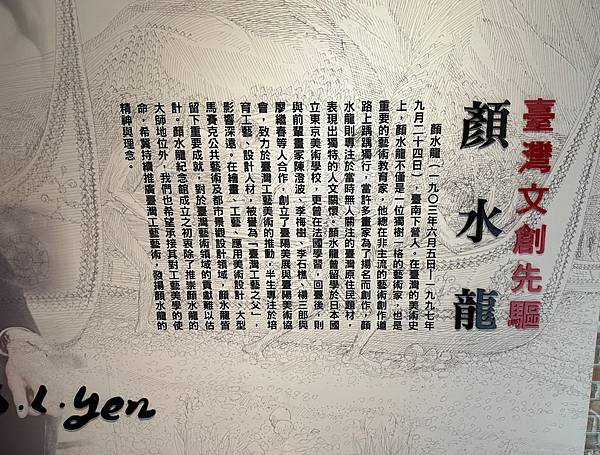 臺灣文創先驅
顏水龍
顏水龍(一九〇三年六月五日—一九九七年
九月二十四日),臺南下營人。在臺灣的美術史
上,顏水龍不僅是一位獨樹一格的藝術家,也是
重要的藝術教育家,他總在非主流的藝術創作道
路上踽踽獨行,當許多畫家為了揚名而創作,顏
水龍則專注於當時無人關注的臺灣原住民題材,
表現出獨特的人文關懷。顏水龍曾留學於日本國
立東京美術學校,更曾在法國學習,回臺後,則
與前輩畫家陳澄波、李梅樹、李石樵、楊三郎與
廖繼春等人合作,創立了臺陽美展與臺陽美術協
會,致力於臺灣工藝美術的推動,半生專注於培
育工藝、設計人材,被譽為「臺灣工藝之父」,
影響深遠。在繪畫、工藝、應用美術設計、大型
馬賽克公共藝術及都市景觀設計領域,顏水龍皆
留下重要成就,對於臺灣藝術領域的貢獻難以估
計。顏水龍紀念館成立之初衷除了推崇顏水龍的
大師地位外,我們也希望承接其對工藝美學的使
命,希冀持續推廣臺灣工藝藝術,發揚顏水龍的
精神與理念。
S.L.Yen